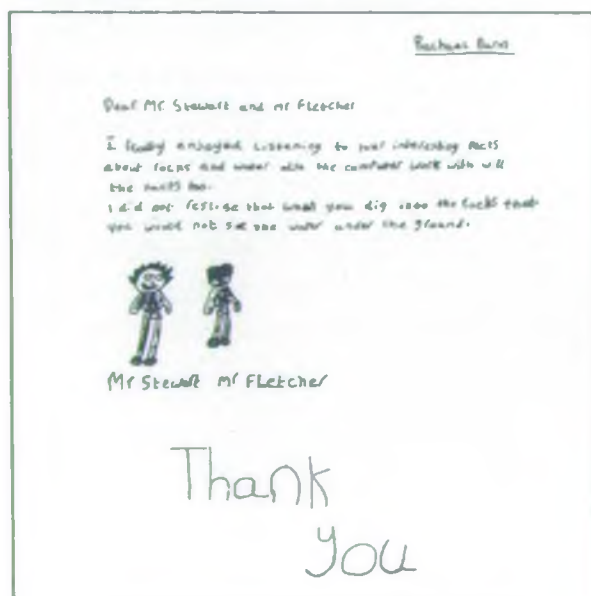 Dear Mr Stewart and mr Fletcher
I really enjoyed Listening to your interesting facts
about rocks and water also the computer work with
the
I did not realise that when you dig into the rocks that
you would not see the water under the ground.
Mr Stewart mr Fletcher
Thank
you